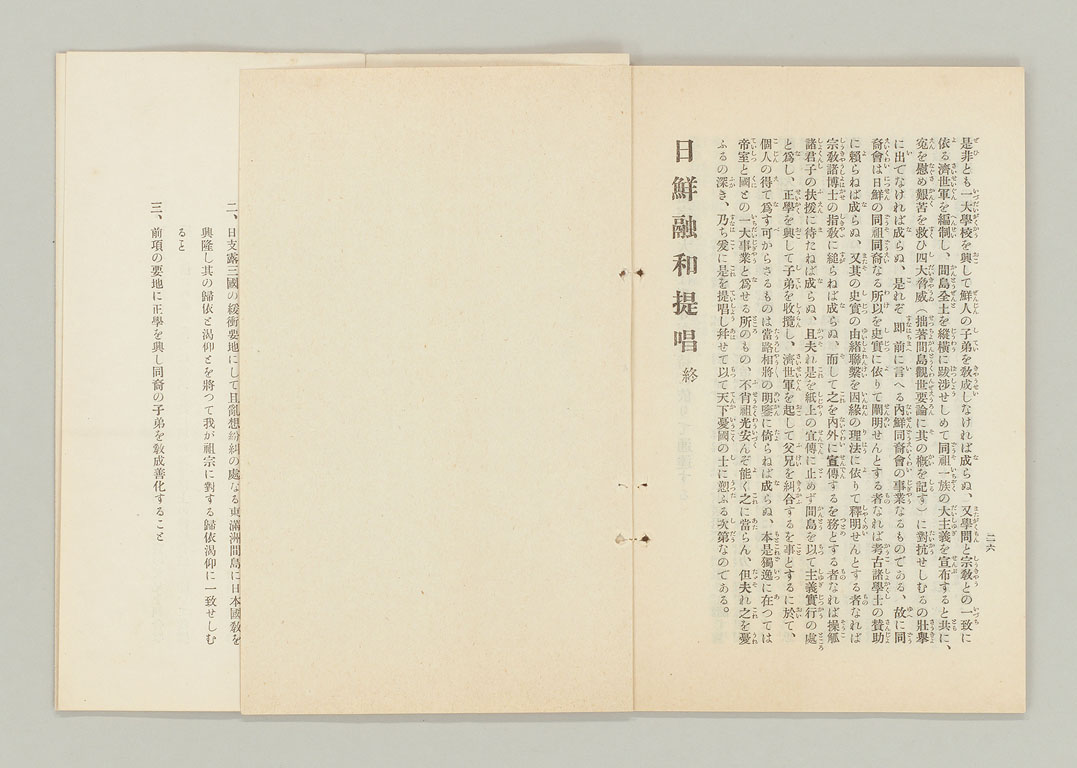 二六
是非とも一大學校を興して鮮人の子弟を敎成しなければ成らぬ、又學問と宗敎との一致に
依る濟世軍を編制し、間島全土を縱橫に跋涉せしめて同祖一族の大主義を宣布すると共に、
寃を慰め艱苦を救ひ四大脅威（拙著間島觀世要論に其の槪を記す）に對抗せしむるの壯擧
に出でなければ成らぬ、是れぞ卽前に言へる內鮮同裔會の事業なるものである、故に同
裔會は日鮮の同祖同裔なる所以を史實に依りて闡明せんとする者なれば考古諸學士の贊助
に賴らねば成らぬ、又其の史實の由緖聯繫を因緣の理法に依りて釋明せんとする者なれば
宗敎諸博士の指敎に縋らねば成らぬ、而して之を內外に宣傳するを務とする者なれば操觚
諸君子の扶援に待たねば成らぬ、且夫れ是を紙上の宣傳に止めず間島を以て主義實行の處
と爲し、正學を興して子弟を收攬し、濟世軍を起して父兄を糾合するを事とするに於て、
個人の得て爲す可からさるものは當路相將の明鑒に倚らねば成らぬ、本是獨逸に在つては
帝室と國との一大事業と爲せる所のもの、不肖祖光安んぞ能く之に當らん、但夫れ之を憂
ふるの深き、乃ち爰に是を提唱し幷せて以て天下憂國の士に愬ふる次第なのである。
日鮮融和提唱 終
二、日支露三國の緩衝要地にして且亂想紛糾の處なる東滿洲間島に日本國敎を
興隆し其の歸依と渴仰とを將つて我が祖宗に對する歸依渴仰に一致せしむ
ること
三、前項の要地に正學を興し同裔の子弟を敎成善化すること